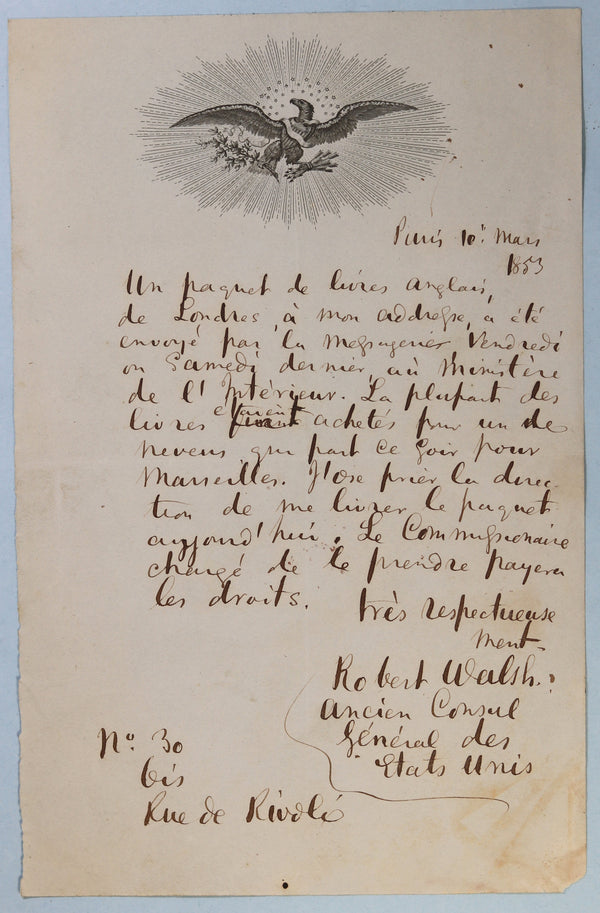 Paris 10. Mars
1853
Un paquet de livres anglais,
de Londres, à mon addresse, a été
envoyé par la Messageries Vendredi
ou Samedi dernier, au Ministère
de l'Intérieur. La plupart des
livres étaient achetés pour un de
neveus qui part ce soir pour
Marseilles. J'ose prier la direc-
tion de me livrer le paquet
aujourd'hui. Le Commissionaire
chargé de le prendre payera
les droits. très respectueuse
ment.
Robert Walsh.
ancien Consul
Général des
Etats Unis
No. 30
bis
Rue de Rivoli